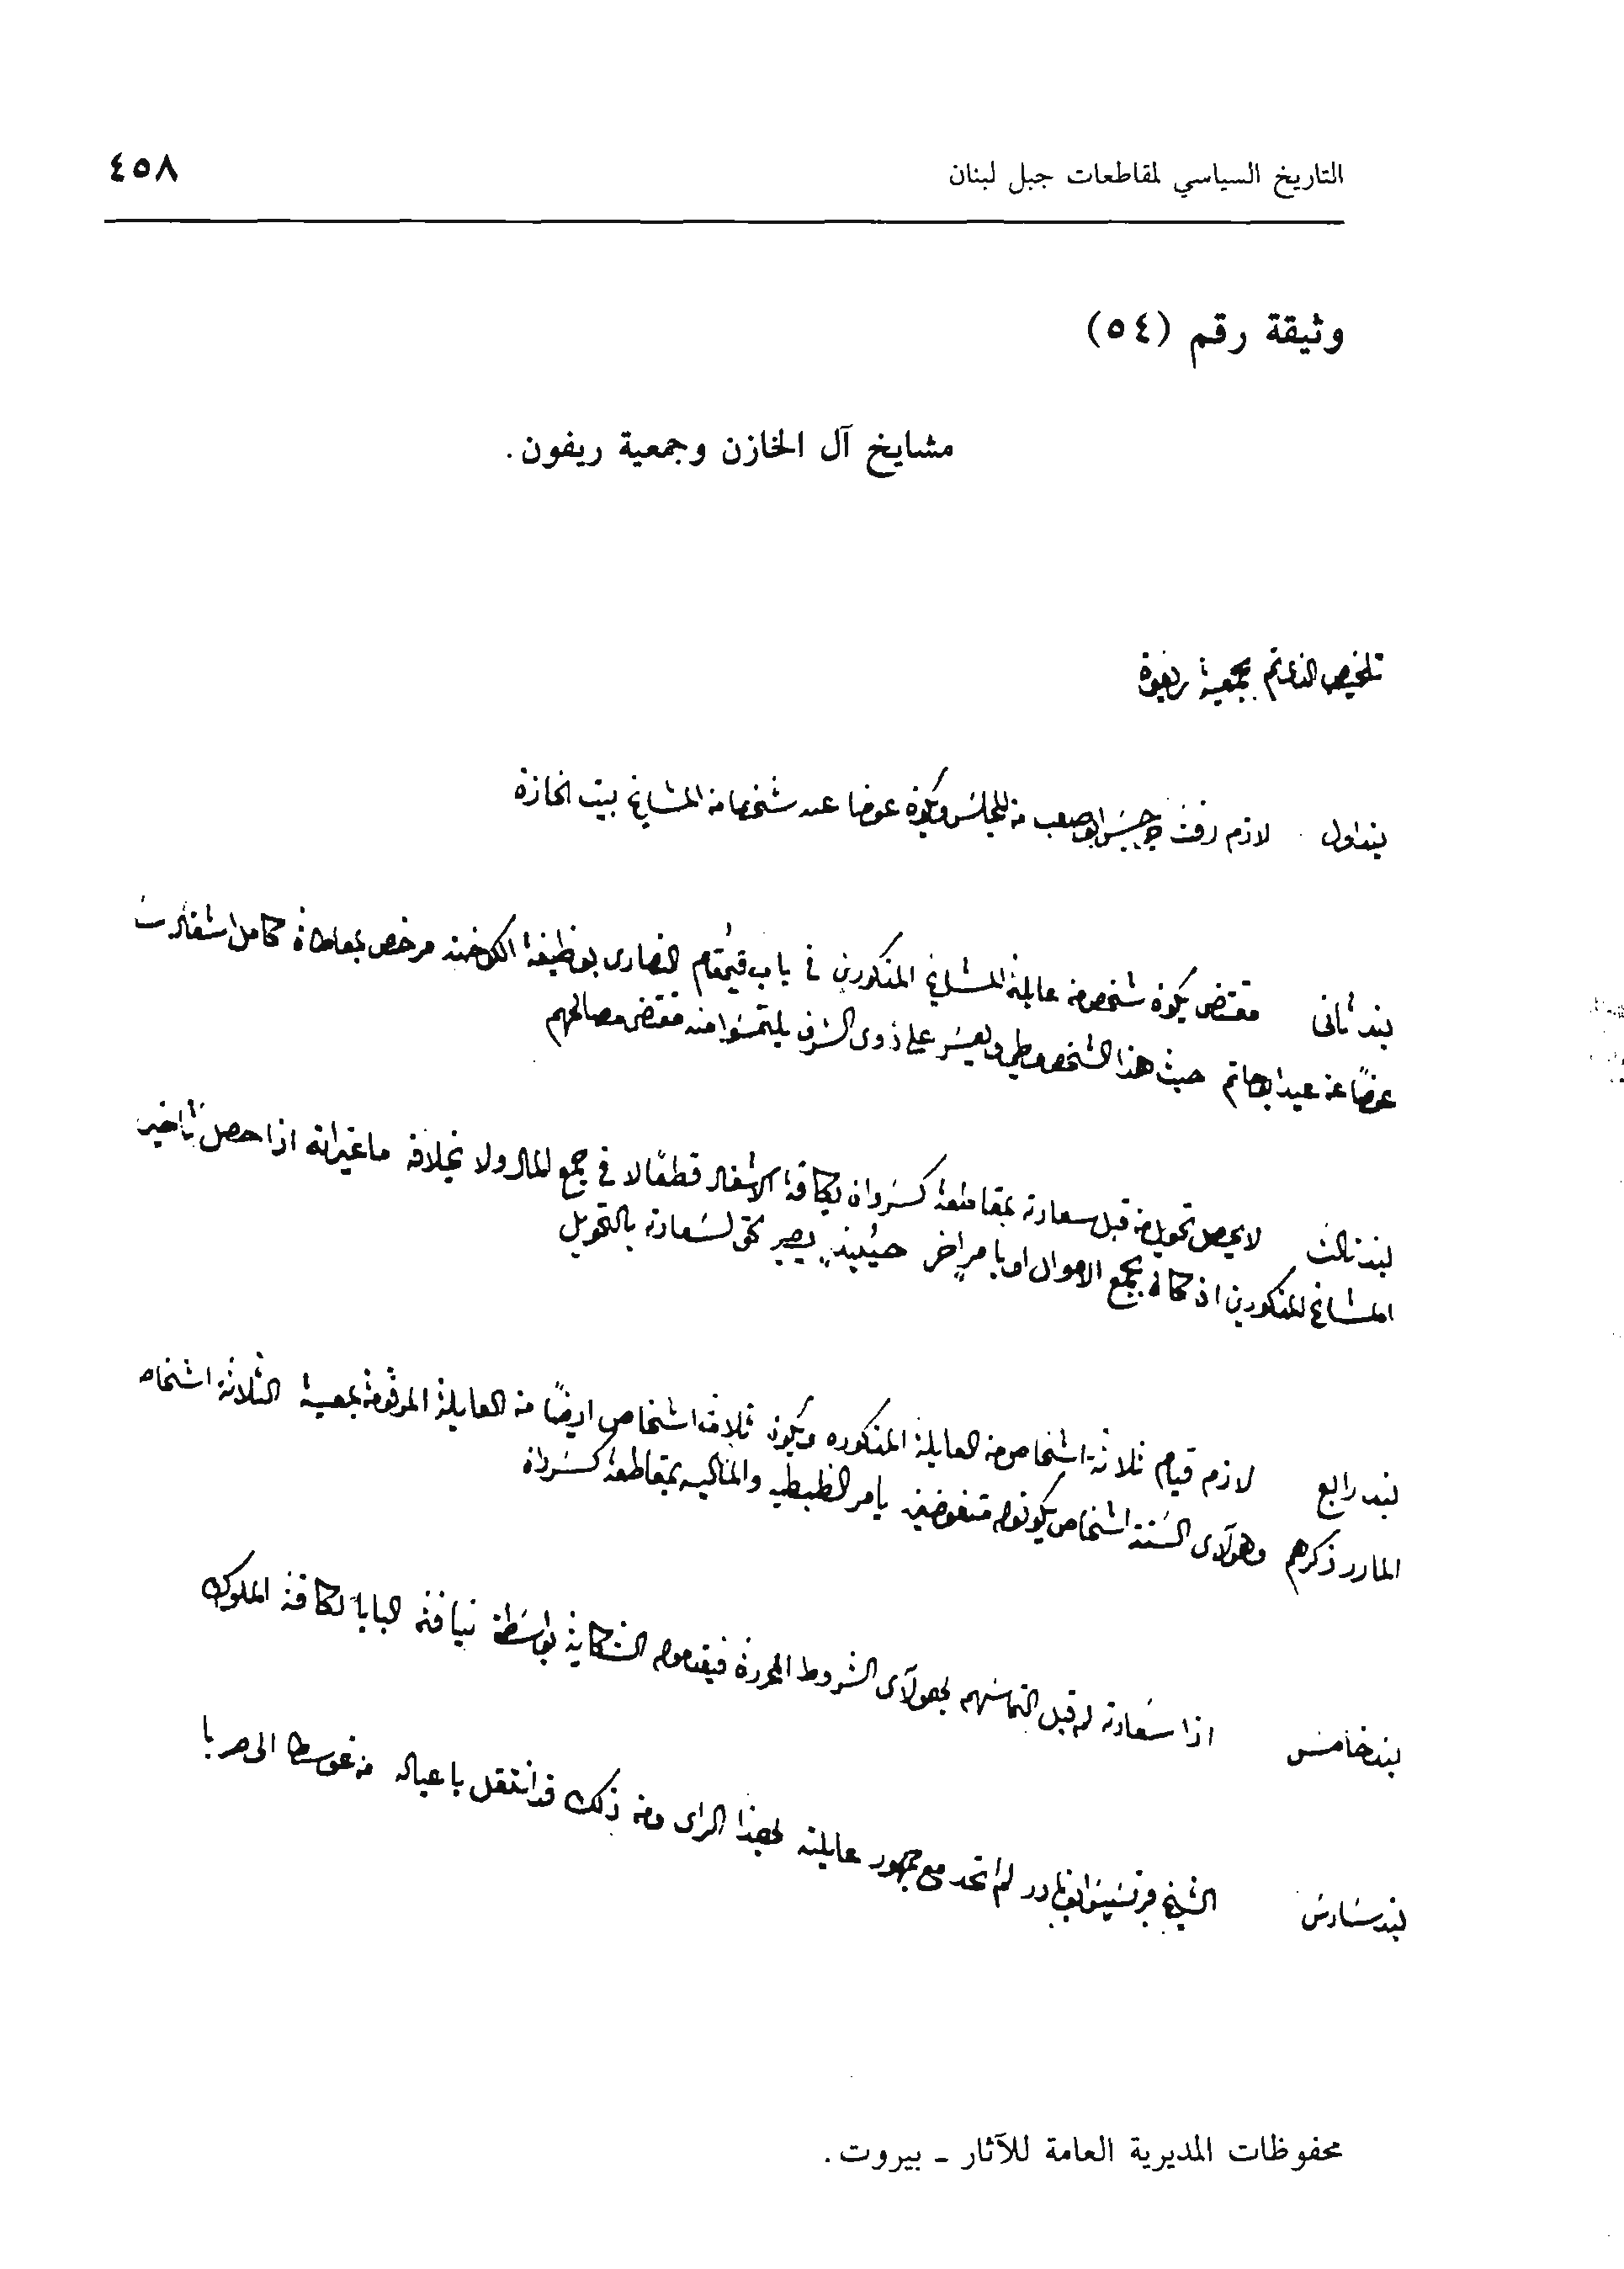 التاريخ السياسي لمقاطعات جبل لبنان ٤٥٨
وثيقة رقم (٥٤)
مشايخ آل الخازن وجمعية ريفون.
تلخيص الذى تم بجمعية ريفون
بند اول لازم رفت جرجس ابو صعب من المجلس ويكون عوضا عنه شخصا من المشايخ بيت الخازن
بند ثانى مقتضى يكون شخص من عايلة المشايخ المذكورين فى باب قيمقام النصارى بوظيفة مرخص بمعاطاة كامل اشغالات
عوضًا عن عيد ابو حاتم حيث هذا الشخص وطى ويعسر على ذوى الشرف يلتمسوا منه مقتضى مصالحهم
بند ثالث لا يحصل تحويل من قبل سعادته بمقاطعة كسروان بكافة الاشغال قطعًا لا فى جمع المال ولا بخلافه ما غير انه اذا حصل تأخير
المشايخ المذكورين اذ كان بجمع الاموال او بامرٍ اخر حينيذٍ يصير حق لسعادته بالتحويل
بند رابع لازم قيام ثلاثة اشخاص من العايلة المذكوره ويكون ثلاث اشخاص ايضًا من العايلة المرقومة بمعية الثلاثة اشخاص
المارر ذكرهم وهولآى الستة اشخاص يكونوا متفوضين بامر الظبطيه والماليه بمقاطعة كسروان
بند خامس اذا سعادته لم قبل التماسهم بهولآى الشروط المحررة فيقدموا الشكاية بواسطة نيافة البابا لكافة الملوك
بند سادس الشيخ فرنسيس ابو نادر لم اتحد مع جمهور عايلته بهذا الراى ومن ذلك قد انتقل باعياله من غوسطا الى صربا
محفوظات المديرية العامة للآثار ـ بيروت.